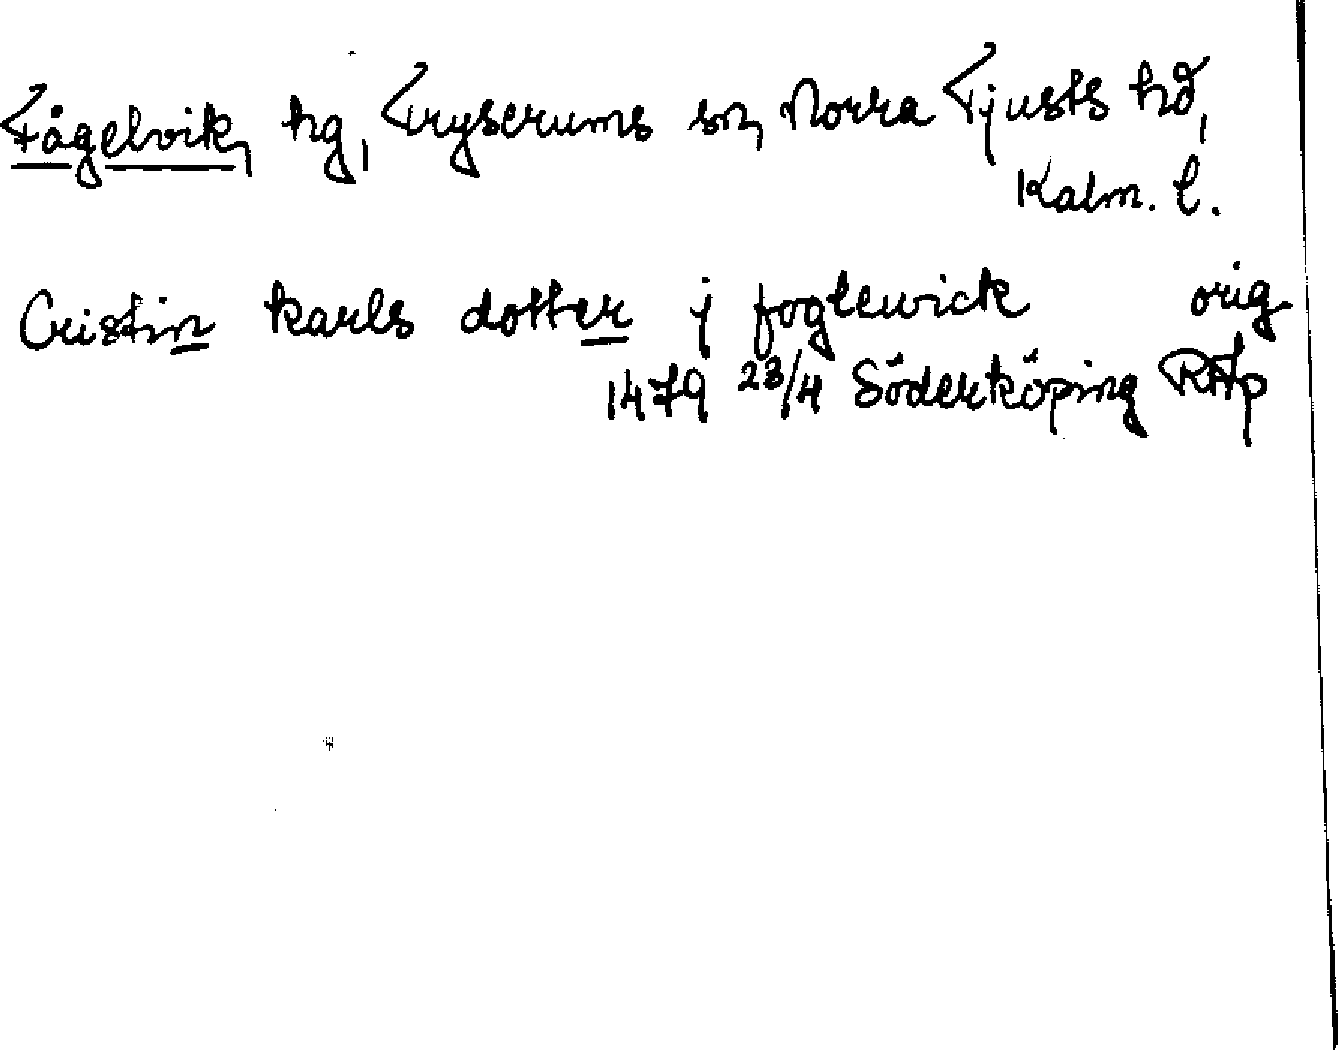 Fågelvik, hg, Tryserums sn, Norra Tjusts hd,
Kalm. l.
Cristin karls dotter j foglewick orig
1479 23/4 Söderköping RAp